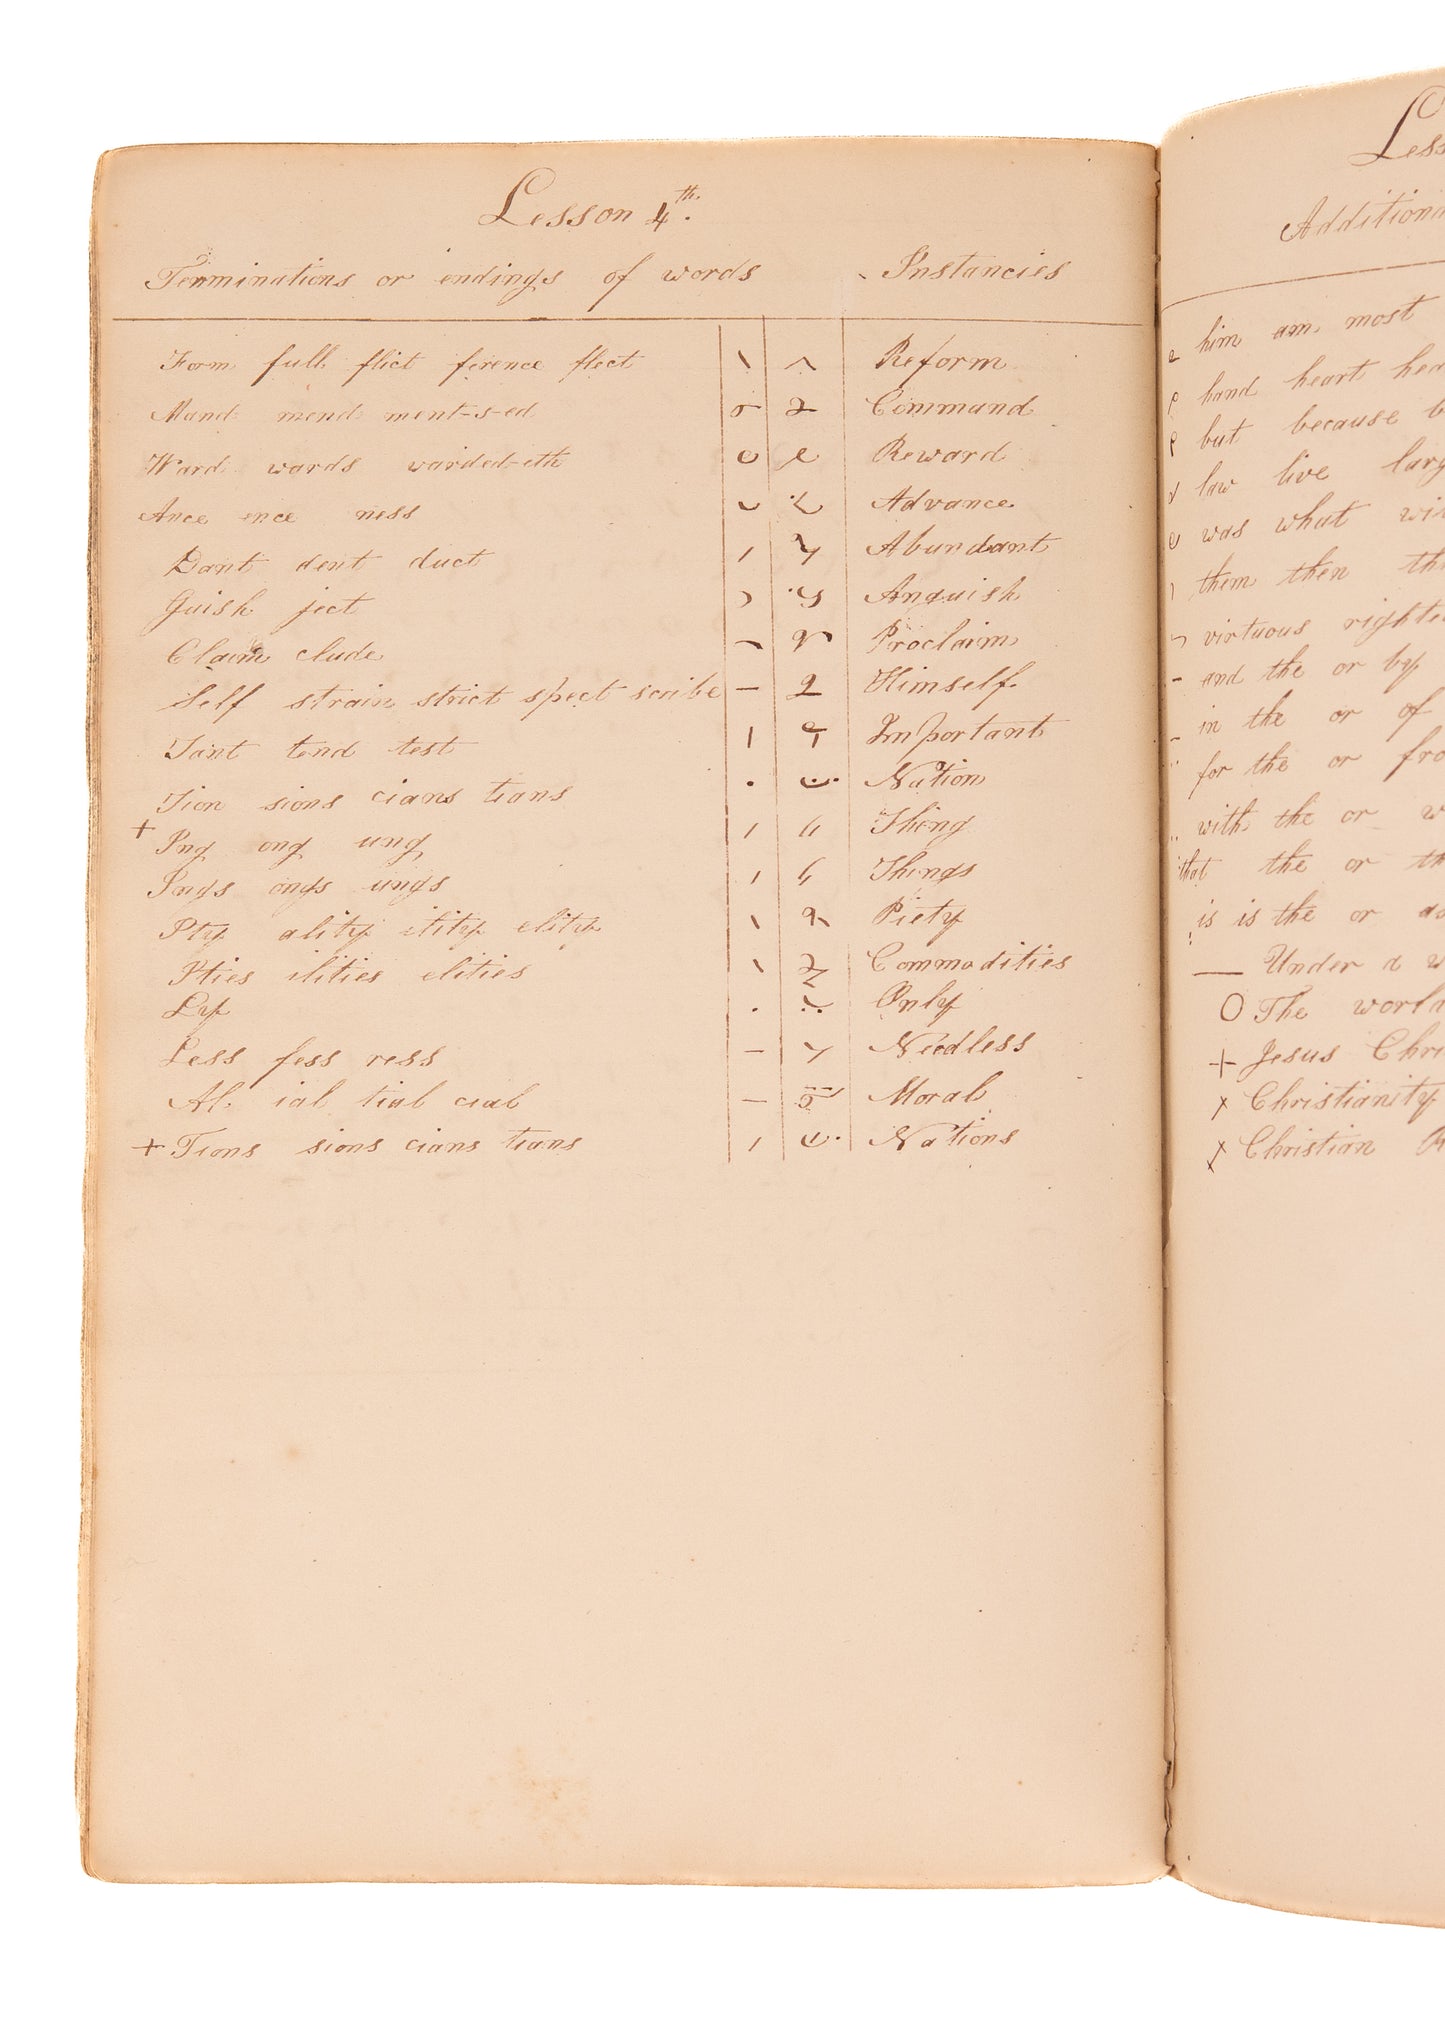 Lesson 4th.
Terminations or endings of words Instancies
Form full flict ference flect Reform
Mand mend ment-s-ed Command
Ward wards warded-eth Reward
Ance ence ness Advance
Dant dent duct Abundant
Guish ject Anguish
Claim clude Proclaim
Self strain strict spect scribe Himself
Tant tend test Important
Tion sions cians tians Nation
+ Ing ong ung Thing
Ings ongs ungs Things
Ity ality ility elity Piety
Ities ilities elities Commodities
Ly Only
Less fess ress Needless
Al ial tial cial Moral
+ Tions sions cians tians Nations
Less
Additiona
him am most
hand heart hea
but because b
law live larg
was what wi
them then th
virtuous righte
and the or by
in the or of
for the or fro
with the or w
that the or th
is is the or as
Under a w
The world
Jesus Chri
Christianity
Christian R